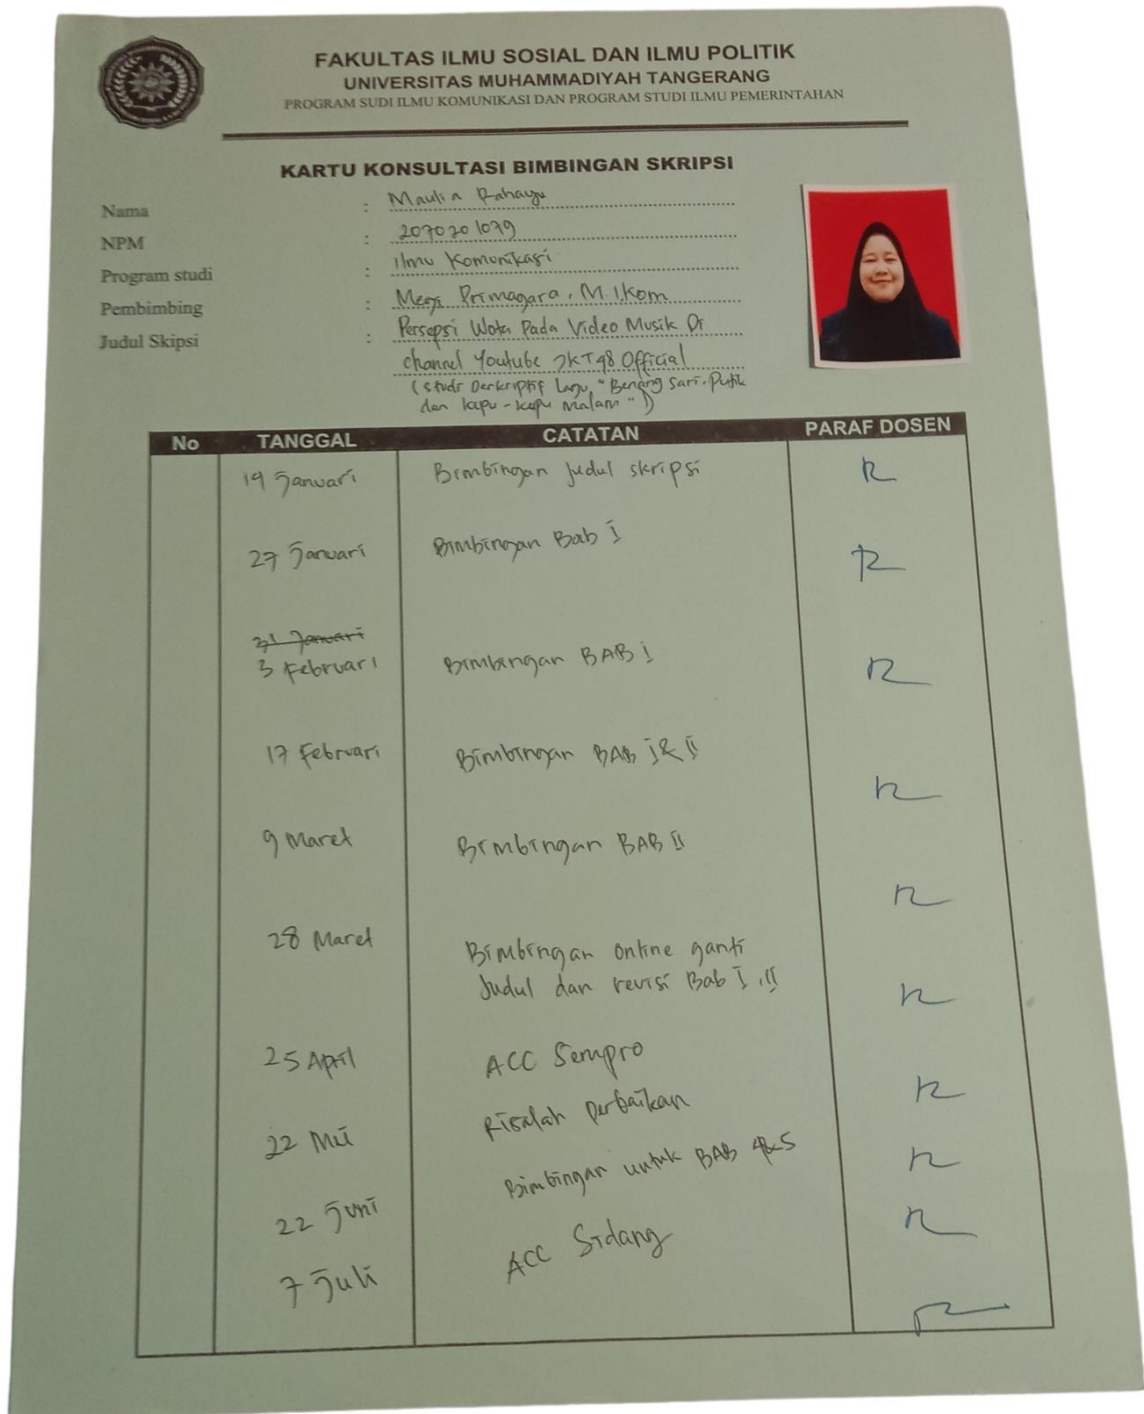 FAKULTAS ILMU SOSIAL DAN ILMU POLITIK
UNIVERSITAS MUHAMMADIYAH TANGERANG
PROGRAM SUDI ILMU KOMUNIKASI DAN PROGRAM STUDI ILMU PEMERINTAHAN
KARTU KONSULTASI BIMBINGAN SKRIPSI
Nama : Maulia Rahayu
NPM : 2070201079
Program studi : Ilmu Komunikasi
Pembimbing : Primagara, M.IKom
Judul Skipsi : Persepsi Wota Pada Video Musik Di
channel Youtube JKT48 Official
(Studi Deskriptif lagu "Benang Sari, Putik
dan kupu-kupu malam")
No TANGGAL CATATAN PARAF DOSEN
19 Januari Bimbingan judul skripsi
27 Januari Bimbingan Bab I
31 Januari
3 Februari Bimbingan BAB I
17 Februari Bimbingan BAB I & II
9 Maret Bimbingan BAB II
28 Maret Bimbingan online ganti
Judul dan revisi Bab I, II
25 April ACC Sempro
22 Mei Risalah perbaikan
22 Juni Bimbingan untuk BAB 4&5
7 Juli ACC Sidang